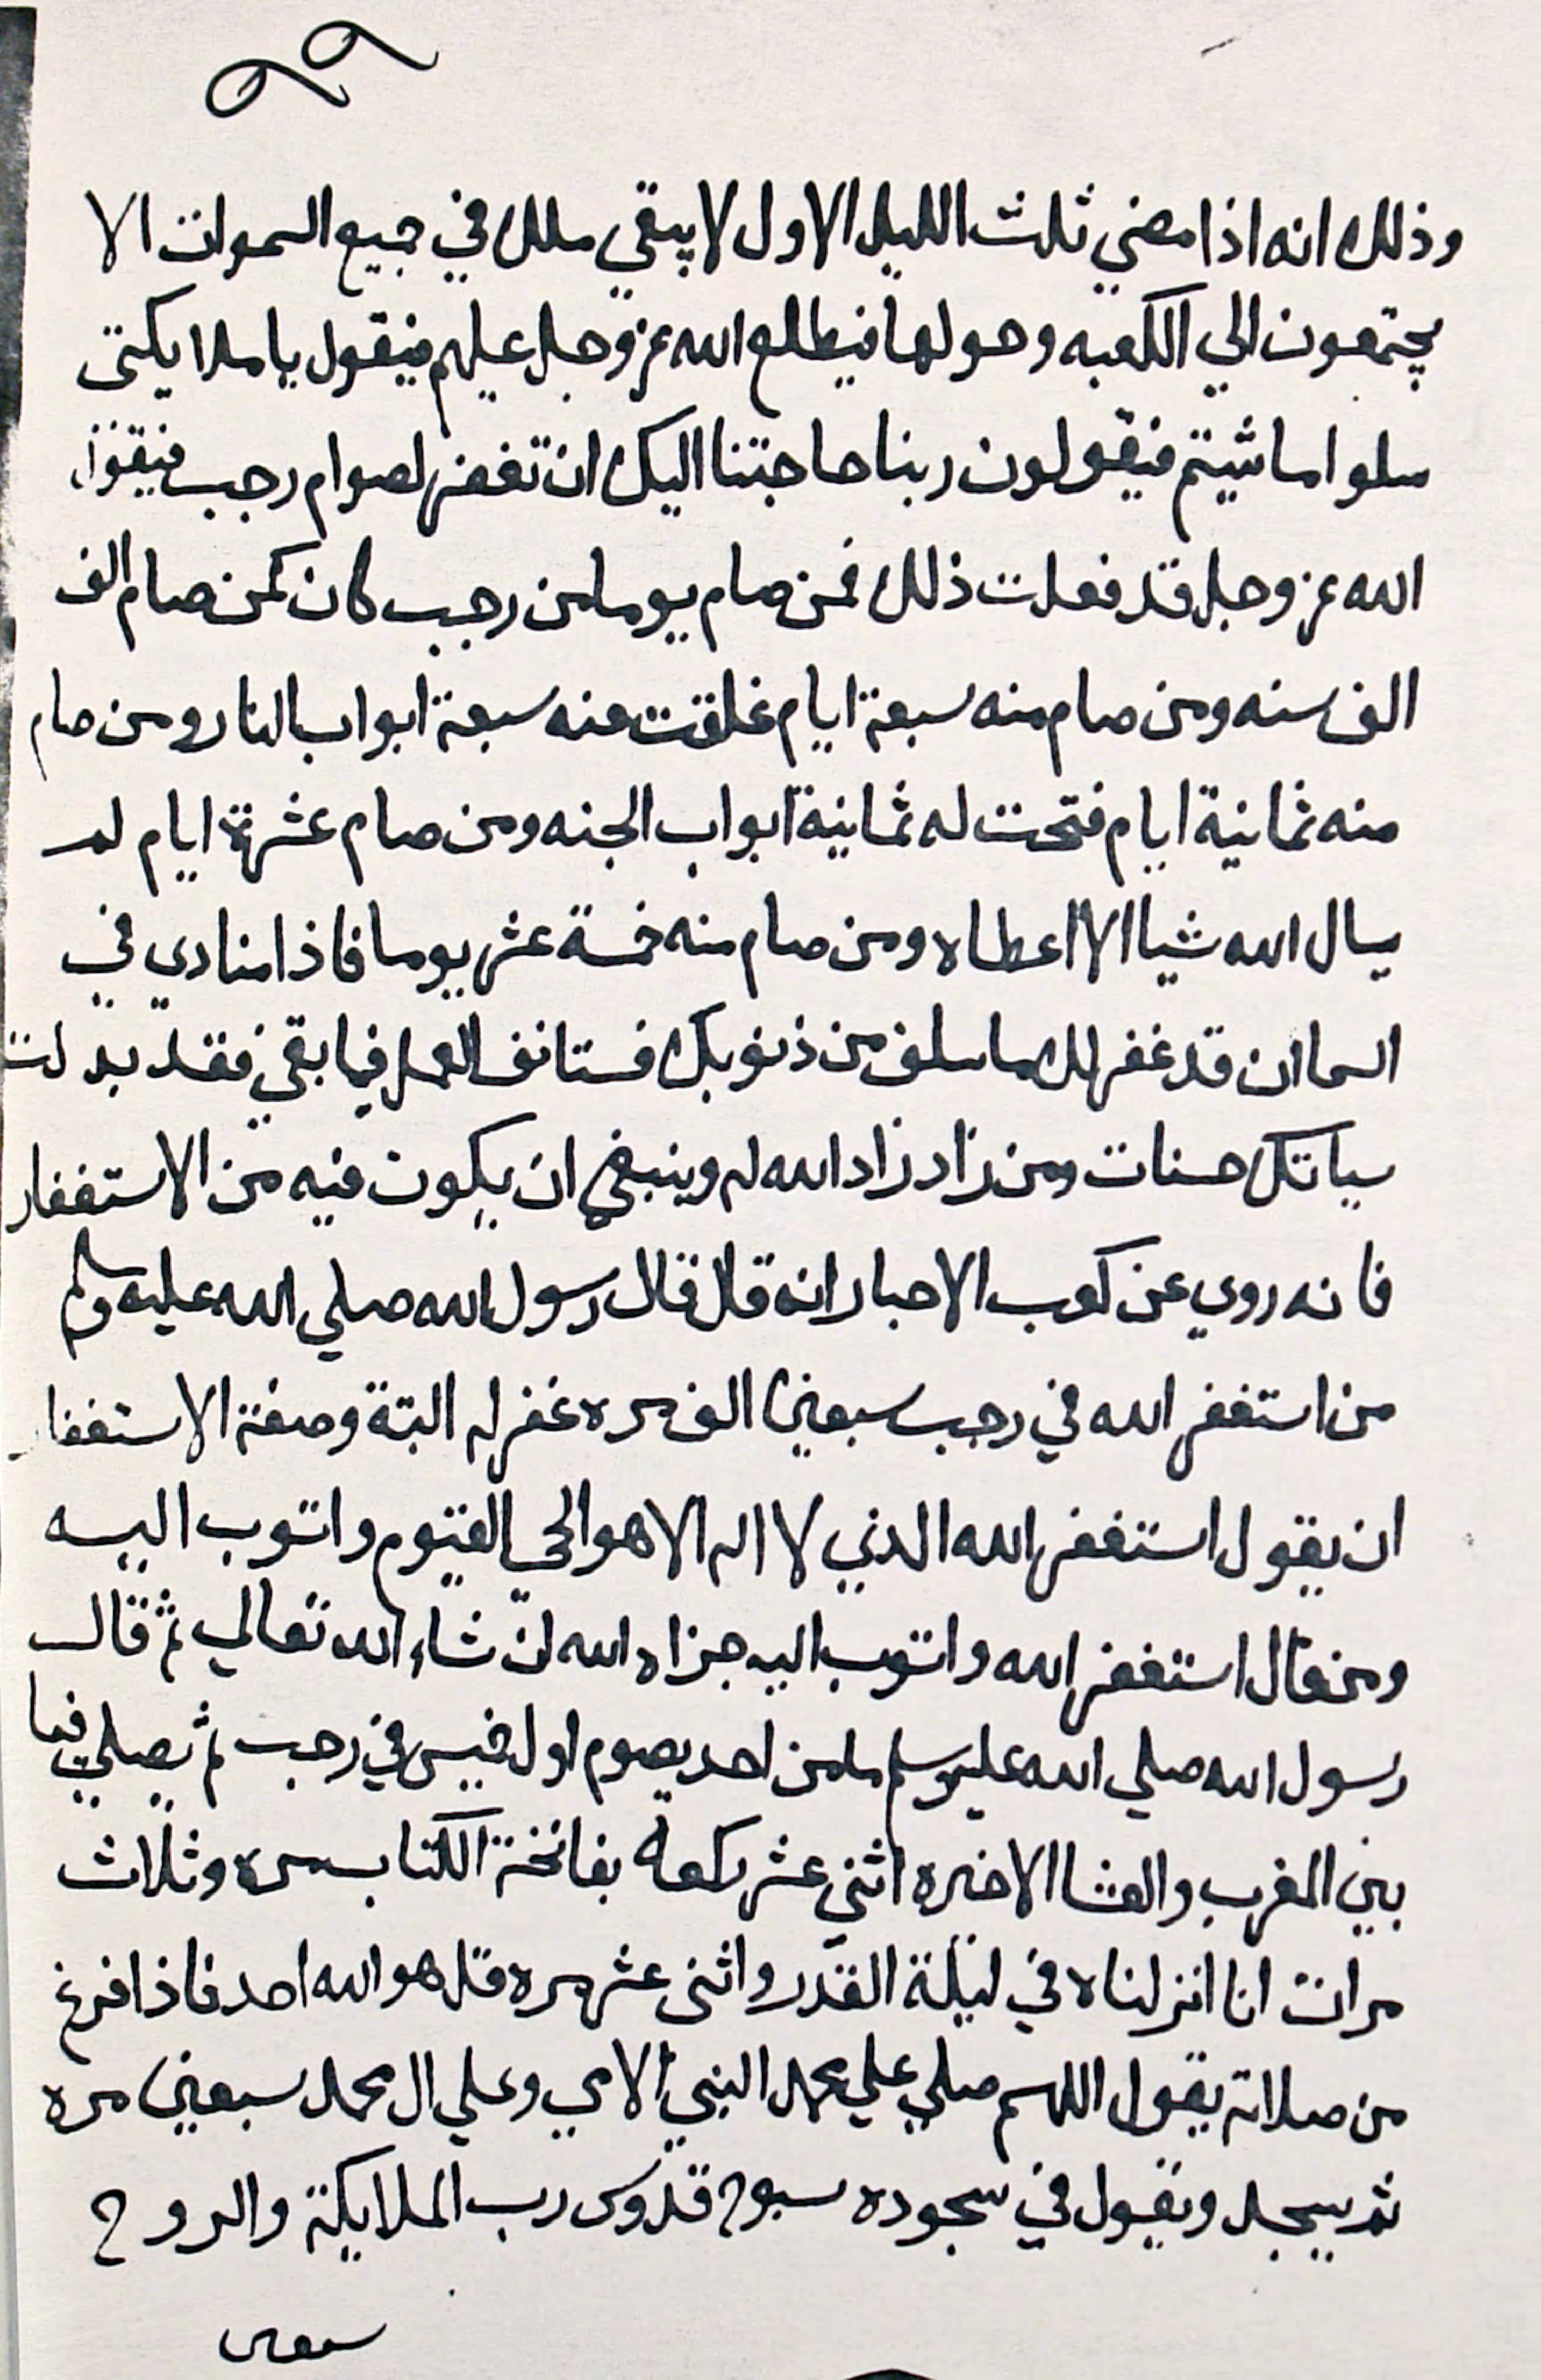 ٩٩
وذلك انه اذا مضي ثلث الليل الاول لا يبقي ملك في جميع السموات الا
يجتمعون الي الكعبه وحولها فيطلع الله عز وجل عليهم فيقول يا ملايكتى
سلوا ما شيتم فيقولون ربنا حاجتنا اليك ان تغفر لصوام رجب فيقول
الله عز وجل قد فعلت ذلك فمن صام يوما من رجب كان كمن صام الف
الف سنه ومن صام منه سبعة ايام غلقت عنه سبعة ابواب النار ومن صام
منه ثمانية ايام فتحت له ثمانية ابواب الجنه ومن صام عشرة ايام لم
يسال الله شيا الا اعطاه ومن صام منه خمسة عشر يوما فاذا منادي في
السما ان قد غفر لك ما سلف من ذنوبك فستانف العمل فيما بقي فقد بدلت
سياتك حسنات ومن زاد زاد الله له وينبغي ان يكون فيه من الاستغفار
فانه روي عن كعب الاحبار انه قال قال رسول الله صلي الله عليه وسلم
من استغفر الله في رجب سبعين الف مره غفر له البتة وصفة الاستغفار
ان يقول استغفر الله الذي لا اله الا هو الحي القيوم واتوب اليه
ومن قال استغفر الله واتوب اليه جزاه الله ان شاء الله تعالي ثم قال
رسول الله صلي الله عليه وسلم ما من احد يصوم اول خميس في رجب ثم يصلي فيما
بين المغرب والعشا الاخيره اثني عشر ركعة بفاتحة الكتاب مره وثلاث
مرات انا انزلناه في ليلة القدر واثنى عشر مره قل هو الله احد فاذا افرغ
من صلاته يقول اللهم صلي علي محمد النبي الامي وعلي ال محمد سبعين مره
ثم يسجد ويقول في سجوده سبوح قدوس رب الملايكة والروح
سبعين